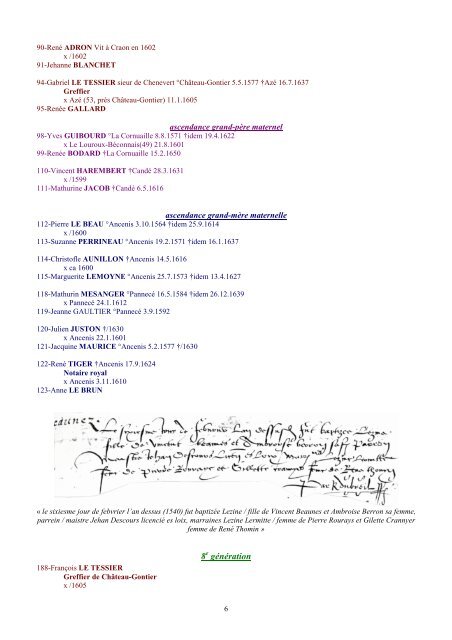 90-René ADRON Vit à Craon en 1602
x /1602
91-Jehanne BLANCHET
94-Gabriel LE TESSIER sieur de Chenevert °Château-Gontier 5.5.1577 †Azé 16.7.1637
Greffier
x Azé (53, près Château-Gontier) 11.1.1605
95-Renée GALLARD
ascendance grand-père maternel
98-Yves GUIBOURD °La Cornuaille 8.8.1571 †idem 19.4.1622
x Le Louroux-Béconnais(49) 21.8.1601
99-Renée BODARD †La Cornuaille 15.2.1650
110-Vincent HAREMBERT †Candé 28.3.1631
x /1599
111-Mathurine JACOB †Candé 6.5.1616
ascendance grand-mère maternelle
112-Pierre LE BEAU °Ancenis 3.10.1564 †idem 25.9.1614
x /1600
113-Suzanne PERRINEAU °Ancenis 19.2.1571 †idem 16.1.1637
114-Christofle AUNILLON †Ancenis 14.5.1616
x ca 1600
115-Marguerite LEMOYNE °Ancenis 25.7.1573 †idem 13.4.1627
118-Mathurin MESANGER °Pannecé 16.5.1584 †idem 26.12.1639
x Pannecé 24.1.1612
119-Jeanne GAULTIER °Pannecé 3.9.1592
120-Julien JUSTON †/1630
x Ancenis 22.1.1601
121-Jacquine MAURICE °Ancenis 5.2.1577 †/1630
122-René TIGER †Ancenis 17.9.1624
Notaire royal
x Ancenis 3.11.1610
123-Anne LE BRUN
« le sixiesme jour de febvrier l’an dessus (1540) fut baptizée Lezine / fille de Vincent Beaunes et Ambroise Berron sa femme,
parrein / maistre Jehan Descours licencié es loix, marraines Lezine Lermitte / femme de Pierre Rourays et Gilette Crannyer
femme de René Thomin »
8e génération
188-François LE TESSIER
Greffier de Château-Gontier
x /1605
6